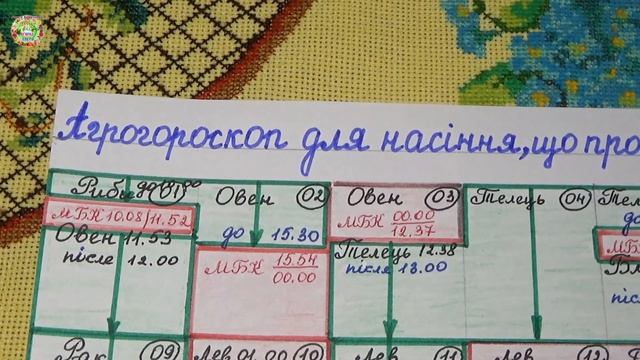 Агрогороскоп для насіння, що про
Риби
01
МБК 10.08/11.52
Овен 11.53
після 12.00
Овен 02
до 15.30
МБК 15.54
00.00
Овен 03
МБК 00.00
12.37
Телець 12.38
після 13.00
Телець 04
Теле
до
МБ
Бл
піс
Рак 09
Лев 01.00 10
Лев 11
12